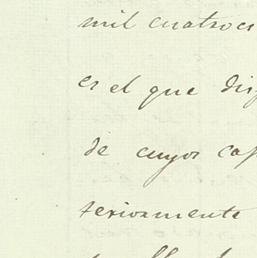 mil cuatroci
es el que dis
de cuyos cap
teriormente